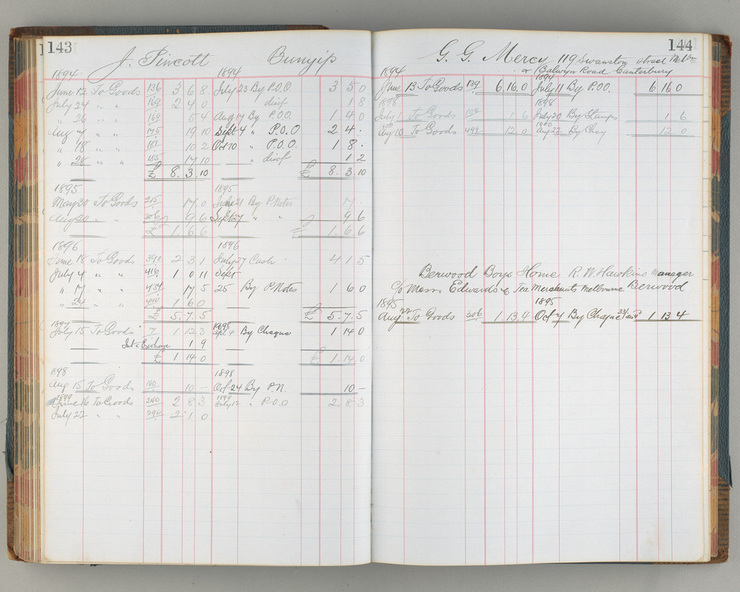 143
J. Pincott Bunyip
1894 1894
June 13 To Goods 136 3 6 8 July 23 By P.O.O 3 5 0
July 24 " " 169 2 4 0 " " disf 1 8
" 26 " " 169 5 4 Aug 17 By P.O.O. 1 4 0
Aug 7 " " 175 19 10 Sept 4 " P.O.O 2 4 -
" 18 " " 10 2 Oct 10 " P.O.O. 1 8 -
" 28 " " 17 10 " disf 1 2
£ 8. 3 10 £ 8. 3 10
1895 1895
May 30 To Goods 17 0 June 21 By P Notes 17 -
Aug " " 9 6 Sept 7 " " 9 6
£ 1 6 6 £ 1 6 6
1896 1896
June 18 To Goods 390 2 3 1 July 27 Cash 4 1 5
July 4 " " 418 1 0 11 Sept
" 17 " " 434 17 5 25 By P Notes 1 6 0
" 24 " " 1 6 0
£ 5. 7. 5 £ 5. 7. 5
1897 1898
July 15 To Goods 7 1 12 3 Sept 4 By Cheque 1 14 0
Int & Exchange 1 9
£ 1 14 0 £ 1 14 0
1898 1898
Aug 15 To Goods 10 - Oct 24 By P.N. 10 -
1899 1899
June 16 To Goods 240 2 8 3 July 12 " P.O.O 2 8 3
July 22 " " 2 1 0
144
G. G. Mercy 119 Swanston Street Melbne
or Balwyn Road Canterbury
1894 1894
June 13 To Goods 139 6 16 0 July 11 By P.O.O. 6 16 0
1898 1898
July To Goods 1 6 July 20 By Stamps 1 6
Aug 10 To Goods 12 0 Aug 22 By Chq 12 0
Berwood Boys Home R W Hawkins Manager
c/o Messrs Edwards & Co Tea Merchants Melbourne Berwood
1895 1895
Aug 22 To Goods 206 1 13 4 Oct 7 By Cheque 1 13 4